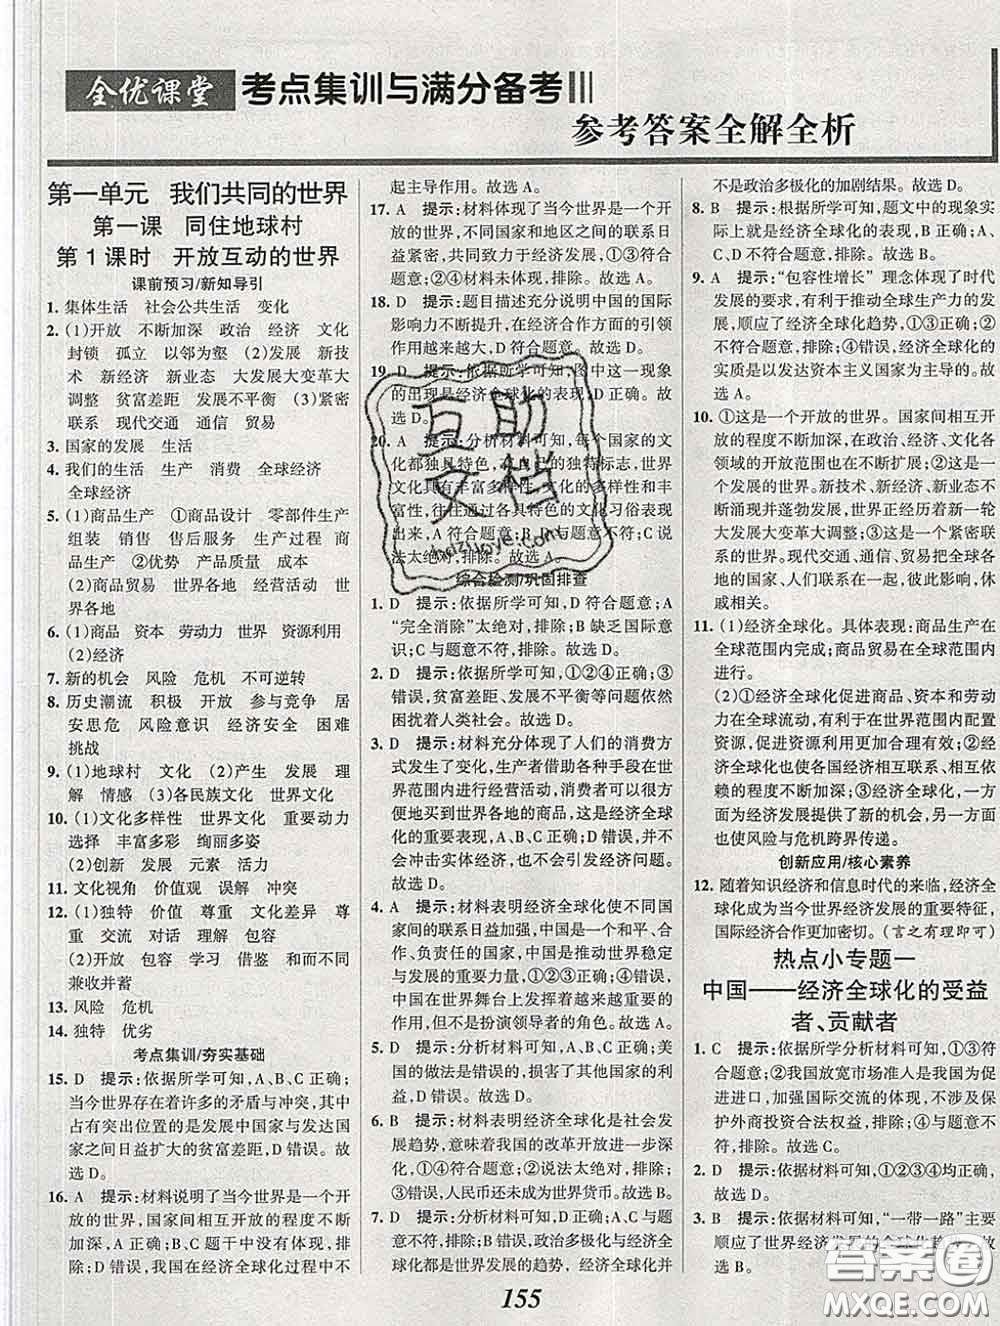 全优课堂 考点集训与满分备考
参考答案全解全析
第一单元 我们共同的世界
第一课 同住地球村
第1课时 开放互动的世界
课前预习/新知导引
1. 集体生活 社会公共生活 变化
2. (1)开放 不断加深 政治 经济 文化
封锁 孤立 以邻为壑 (2)发展 新技
术 新经济 新业态 大发展大变革大
调整 贫富差距 发展不平衡 (3)紧密
联系 现代交通 通信 贸易
3. 国家的发展 生活
4. 我们的生活 生产 消费 全球经济
全球经济
5. (1)商品生产 ①商品设计 零部件生产
组装 销售 售后服务 生产过程 商
品生产 ②优势 产品质量 成本
(2)商品贸易 世界各地 经营活动 世
界各地
6. (1)商品 资本 劳动力 世界 资源利用
(2)经济
7. 新的机会 风险 危机 不可逆转
8. 历史潮流 积极 开放 参与竞争 居
安思危 风险意识 经济安全 困难
挑战
9. (1)地球村 文化 (2)产生 发展 理
解 情感 (3)各民族文化 世界文化
10. (1)文化多样性 世界文化 重要动力
选择 丰富多彩 绚丽多姿
(2)创新 发展 元素 活力
11. 文化视角 价值观 误解 冲突
12. (1)独特 价值 尊重 文化差异 尊
重 交流 对话 理解 包容
(2)开放 包容 学习 借鉴 和而不同
兼收并蓄
13. 风险 危机
14. 独特 优劣
考点集训/夯实基础
15. D 提示:依据所学可知,A、B、C正确;
当今世界存在着许多的矛盾与冲突,其中
占有突出位置的是发展中国家与发达国
家之间日益扩大的贫富差距,D错误。故
选D。
16. A 提示:材料说明了当今世界是一个开
放的世界,国家间相互开放的程度不断
加深,A正确;B、C题干中没有体现,排
除;D错误,在经济全球化过程中不
起主导作用。故选A。
17. A 提示:材料体现了当今世界是一个开
放的世界,不同国家和地区之间的联系日
益紧密,共同致力于经济发展,①③符合
题意;②④材料未体现,排除。故选A。
18. D 提示:题目描述充分说明中国的国际
影响力不断提升,在经济合作方面的引领
作用越来越大,D符合题意。故选D。
19. D 提示:依据所学可知,图中这一现象
的出现是经济全球化的表现,D正确。
故选D。
20. A 提示:分析材料可知,每个国家的文
化都独具特色,有自己的独特标志,世界
文化具有丰富多样性,文化多样性的丰
富性,往往通过各具特色的文化习俗表现
出来,A符合题意;B、D未体现;C说
法太绝对,排除。故选A。
综合检测/巩固排查
1. D 提示:依据所学可知,D符合题意;A
“完全消除”太绝对,排除;B缺乏国际意
识;C与D矛盾,排除。故选D。
2. D 提示:依据所学可知,①②④正确;③
错误,贫富差距、发展不平衡等问题依然
困扰着人类社会。故选D。
3. D 提示:材料充分体现了人们的消费方
式发生了变化,生产者借助各种手段在世
界范围内进行经营活动,消费者可以很方
便地买到世界各地的商品,这是经济全球
化的重要表现,A、B、C正确;D错误,并不
会冲击实体经济,也不会引发经济问题。
故选D。
4. A 提示:材料表明经济全球化使不同国
家间的联系日益加强,中国是一个和平、合
作、负责任的国家,中国是推动世界稳定与
发展的重要力量,①②③正确;④错误,
中国在世界舞台上发挥着越来越重要的
作用,但不是扮演领导者的角色。故选A。
5. D 提示:分析材料可知,A、B、C正确;美
国的做法是错误的,损害了其他国家的利
益,D错误。故选D。
6. B 提示:材料表明经济全球化是社会发
展趋势,意味着我国的改革开放进一步深
化,①④符合题意;②说法太绝对,排除;
③错误,人民币还未成为世界货币。故选B。
7. D 提示:分析材料可知,A、B、C正确;
D错误,政治多极化与经济全
球化都是世界发展的趋势,经济全球化并
不是政治多极化的加剧结果。故选D。
8. B 提示:根据所学可知,题文中的现象实
际上就是经济全球化的表现,B正确;A、
C、D不符合题意,排除。故选B。
9. A 提示:“包容性增长”理念体现了时代
发展的要求,有利于推动全球生产力的发
展,顺应了经济全球化趋势,①③正确;②
不符合题意,排除;④错误,经济全球化的
实质是以发达资本主义国家为主导的。故
选A。
10. ①这是一个开放的世界。国家间相互开
放的程度不断加深,在政治、经济、文化各
领域的开放范围也在不断扩展;②这是一
个发展的世界。新技术、新经济、新业态不
断涌现并蓬勃发展,世界正经历着新一轮
大发展大变革大调整;③这是一个紧密联
系的世界。现代交通、通信、贸易把全球各
地的国家、人们联系在一起,彼此影响,休
戚相关。
11. (1)经济全球化。具体表现:商品生产在
全球范围内完成;商品贸易在全球范围内
进行。
(2)①经济全球化促进商品、资本和劳动
力在全球流动,有利于在世界范围内配置
资源,促进资源利用更加合理有效;②经
济全球化也使各国经济相互联系、相互依
赖的程度不断加深;③经济全球化,一方
面为经济发展提供了新的机会,另一方面
也使风险与危机跨界传递。
创新应用/核心素养
12. 随着知识经济和信息时代的来临,经济全
球化成为当今世界经济发展的重要特征,
国际经济合作更加密切。(言之有理即可)
热点小专题一
中国——经济全球化的受益
者、贡献者
1. C 提示:依据所学分析材料可知,①③符
合题意;②我国放宽市场准入是为了促
进进口,加强国际交流的体现,不涉及
保护外商投资合法权益,排除;④错误,
排除。故选C。
2. D 提示:依据材料可知,①②③④均正确,
故选D。
3. B 提示:依据材料可知,“一带一路”主要
顺应了世界经济发展的全球化趋势,
155
互助
文档
hdzuoye.com
答案圈
MXQE.COM